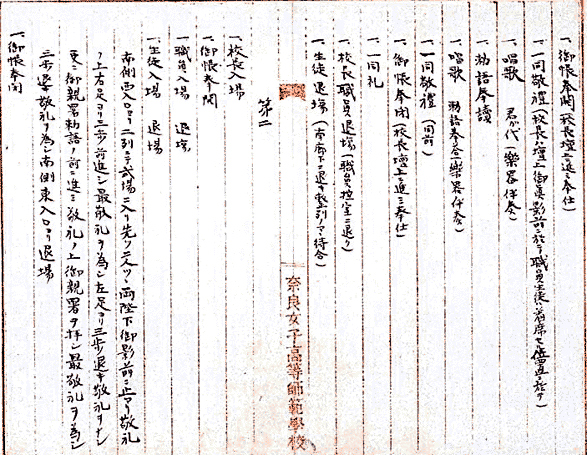 一、御帳奉開(校長壇上ニ進ミ奉仕)
一、一同敬禮(校長ハ壇上御真影前ニ於テ職員生徒ハ着席ノ位置ニ於テ)
一、唱歌 君が代(樂器伴奏)
一、勅語奉讀
一、唱歌 勅語奉答(樂器伴奏)
一、一同敬禮(同前)
一、御帳奉閉(校長壇上ニ進ミ奉仕)
一、一同礼
一、校長職員退場(職員控室ニ退ク)
一、生徒退場(南廊下ニ退キ整列ノマヽ待合)
奈良女子高等師範學校
第二
一、校長入場
一、御帳奉開
一、職員入場 退場
一、生徒入場 退場
南側西入口ヨリ二列ニテ式場ニ入リ先ツ二人ツヽ両陛下御影前ニ止マリ敬礼
ノ上右足ヨリ三歩前進シ最敬礼ヲ為シ左足ヨリ三歩退キ敬礼ヲナシ
更ニ御親署勅語ノ前ニ進ミ敬礼ノ上御親署ヲ拝シ最敬礼ヲ為シ
三歩退キ敬礼ヲ為シ南側東入口ヨリ退場
一、御帳奉閉